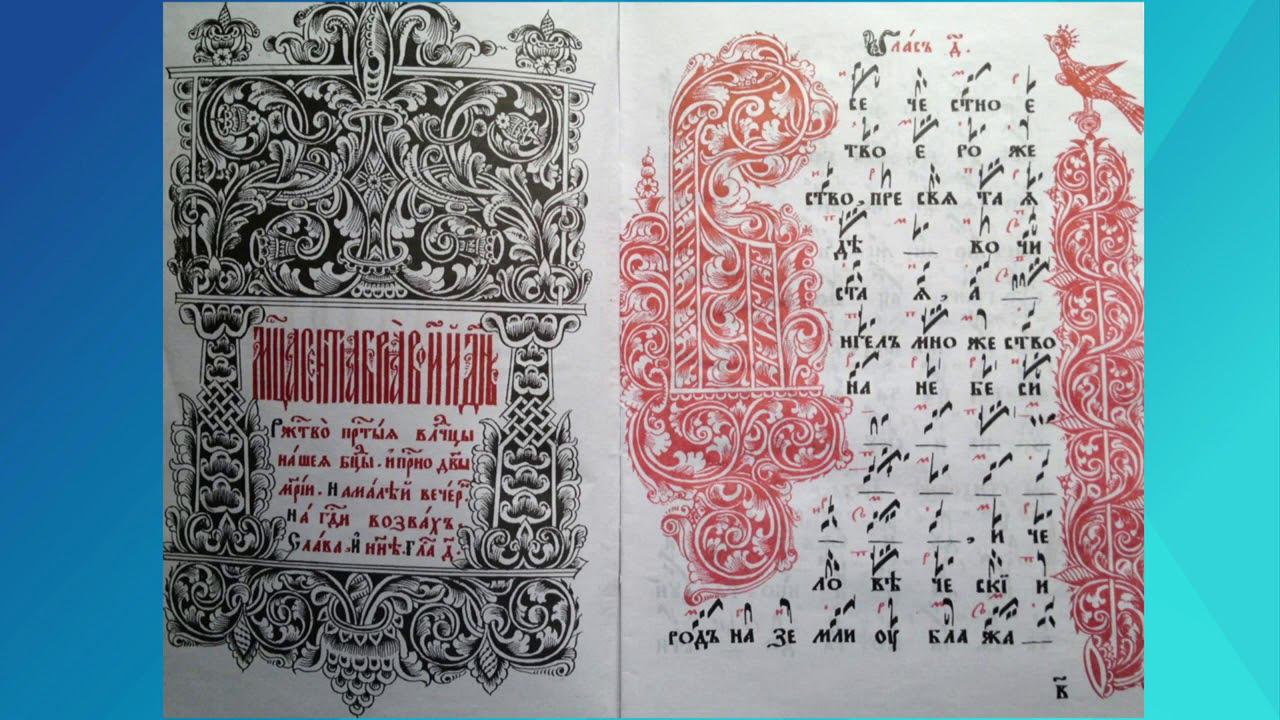 мц҃а сентѧбрѧ въ и҃й дн҃ь
Ржтⷭ҇во̀ прⷭ҇тыѧ влⷣчцы
нашеѧ бц҃ы. и҆ прⷭ҇но дв҃ы
мр҃іи. На малѣй вечерⷩ҇
на гдⷭ҇и возвахъ.
Слава, и҆ нн҃ѣ. гла д҃.
Гласъ д҃.
ВСЕ ЧЕ СТНО Е
ТВО Е РО ЖЕ
СТВО, ПРЕ СВѦ ТА Ѧ
ДѢ ВО ЧИ
СТА Ѧ, А
НГЕЛЪ МНО ЖЕ СТВО
НА НЕ БЕ СИ
И ЧЕ
ЛО ВѢ ЧЕ СКЇ И
РОДЪ НА ЗЕ МЛИ ОУ БЛА ЖА
в҃